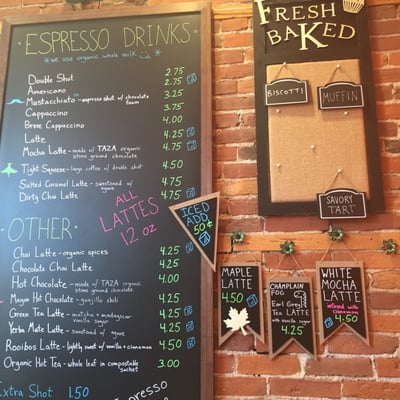 ESPRESSO DRINKS
*We use organic whole milk
Double Shot 2.75
Americano 2.75
Mustacchiato - espresso shot w/ chocolate foam 3.25
Cappuccino 3.75
Breve Cappuccino 4.00
Latte 4.25
Mocha Latte - made w/ TAZA organic stone ground chocolate 4.75
Tight Squeeze - large coffee w/ double shot 4.50
Salted Caramel Latte - sweetened w/ agave 4.75
Dirty Chai Latte 4.75
ALL LATTES 12 oz
OTHER
Chai Latte - organic spices 4.25
Chocolate Chai Latte 4.25
Hot Chocolate - made w/ TAZA organic stone ground chocolate 4.00
Mayan Hot Chocolate - guajillo chili 4.25
Green Tea Latte - matcha + madagascar vanilla sugar 4.25
Yerba Mate Latte - sweetened w/ agave 4.25
Rooibos Latte - lightly sweet w/ vanilla + cinnamon 4.50
Organic Hot Tea - whole leaf in compostable sachet 3.00
Extra Shot 1.50
Espresso
ICED
ADD
50¢
FRESH
BAKED
BISCOTTI
MUFFIN
SAVORY
TART
MAPLE
LATTE
4.50
CHAMPLAIN
FOG
Earl Grey
TEA LATTE
with vanilla sugar
4.25
WHITE
MOCHA
LATTE
infused with
cinnamon
4.50